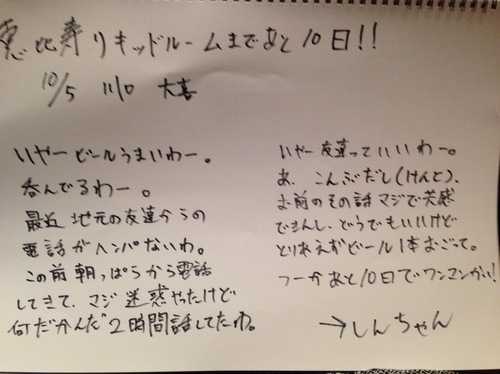 恵比寿リキッドルームまであと10日!!
10/5 川口 大喜
いやービールうまいわー。
呑んでるわー。
最近地元の友達からの
電話がハンパないわ。
この前朝っぱらから電話
してきて、マジ迷惑やったけど
何だかんだ2時間話してたわ。
いやー友達っていいわー。
あ、こんぶだし(けんと)、
お前のその話マジで共感
できんし、どうでもいいけど
とりあえずビール1本おごって。
つーかあと10日でワンマンかい!
→しんちゃん